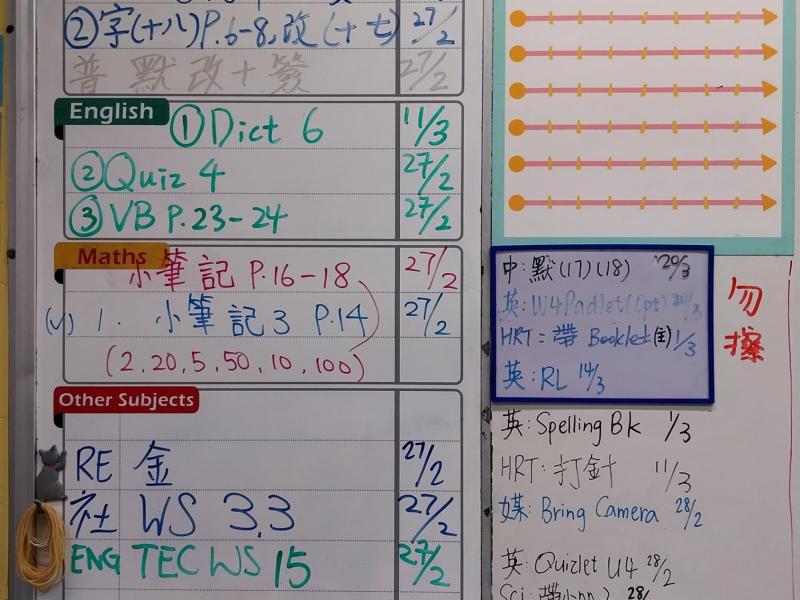 ②字(十八)P.6-8,改(十七) 27/2
普 默改+簽 27/2
English
①Dict 6 11/3
②Quiz 4 27/2
③VB P.23-24 27/2
Maths
小筆記 P.16-18 27/2
(v) 1. 小筆記3 P.14 27/2
(2,20,5,50,10,100)
Other Subjects
RE 金 27/2
社 WS 3.3 27/2
ENG TEC WS 15 27/2
中:默(17)(18) 20/3
英:W4Padlet(Opt) 20/3
HRT:帶 Booklet(主) 1/3
英:RL 14/3
勿擦
英:Spelling Bk 1/3
HRT:打針 11/3
媒:Bring Camera 28/2
英:Quizlet U4 28/2
Sci:帶 28/